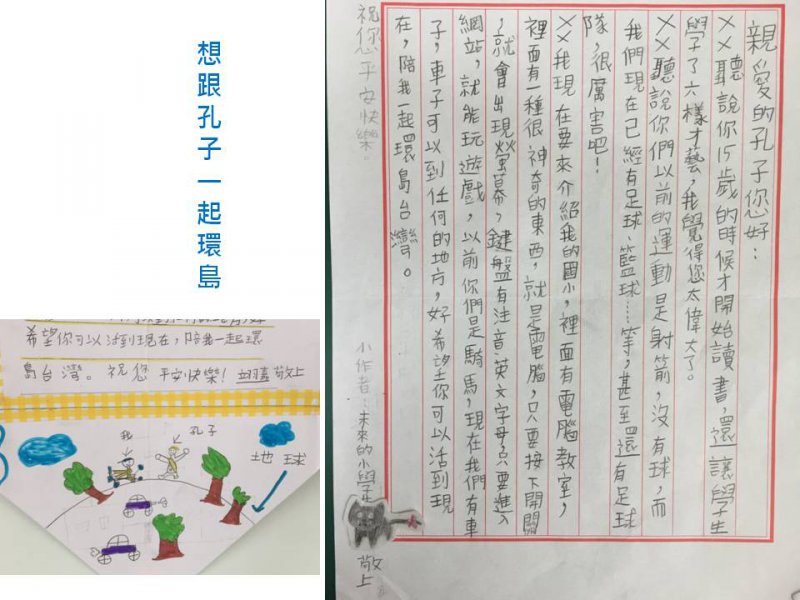 想跟孔子一起環島
親愛的孔子您好：
××聽說你15歲的時候才開始讀書，還讓學生
學了六樣才藝，我覺得您太偉大了。
××聽說你們以前的運動是射箭，沒有球，而
我們現在已經有足球、籃球……等，甚至還有足球
隊，很厲害吧！
××我現在要來介紹我的國小，裡面有電腦教室，
裡面有一種很神奇的東西，就是電腦，只要按下開關
，就會出現螢幕，鍵盤有注音、英文字母，只要進入
網站，就能玩遊戲，以前你們是騎馬，現在我們有車
子，車子可以到任何的地方，好希望你可以活到現
在，陪我一起環島台灣。
祝您平安快樂。
小作者：未來的小學生
敬上
希望你可以活到現在，陪我一起環
島台灣。祝您平安快樂！ 敬上
我
孔子
地球